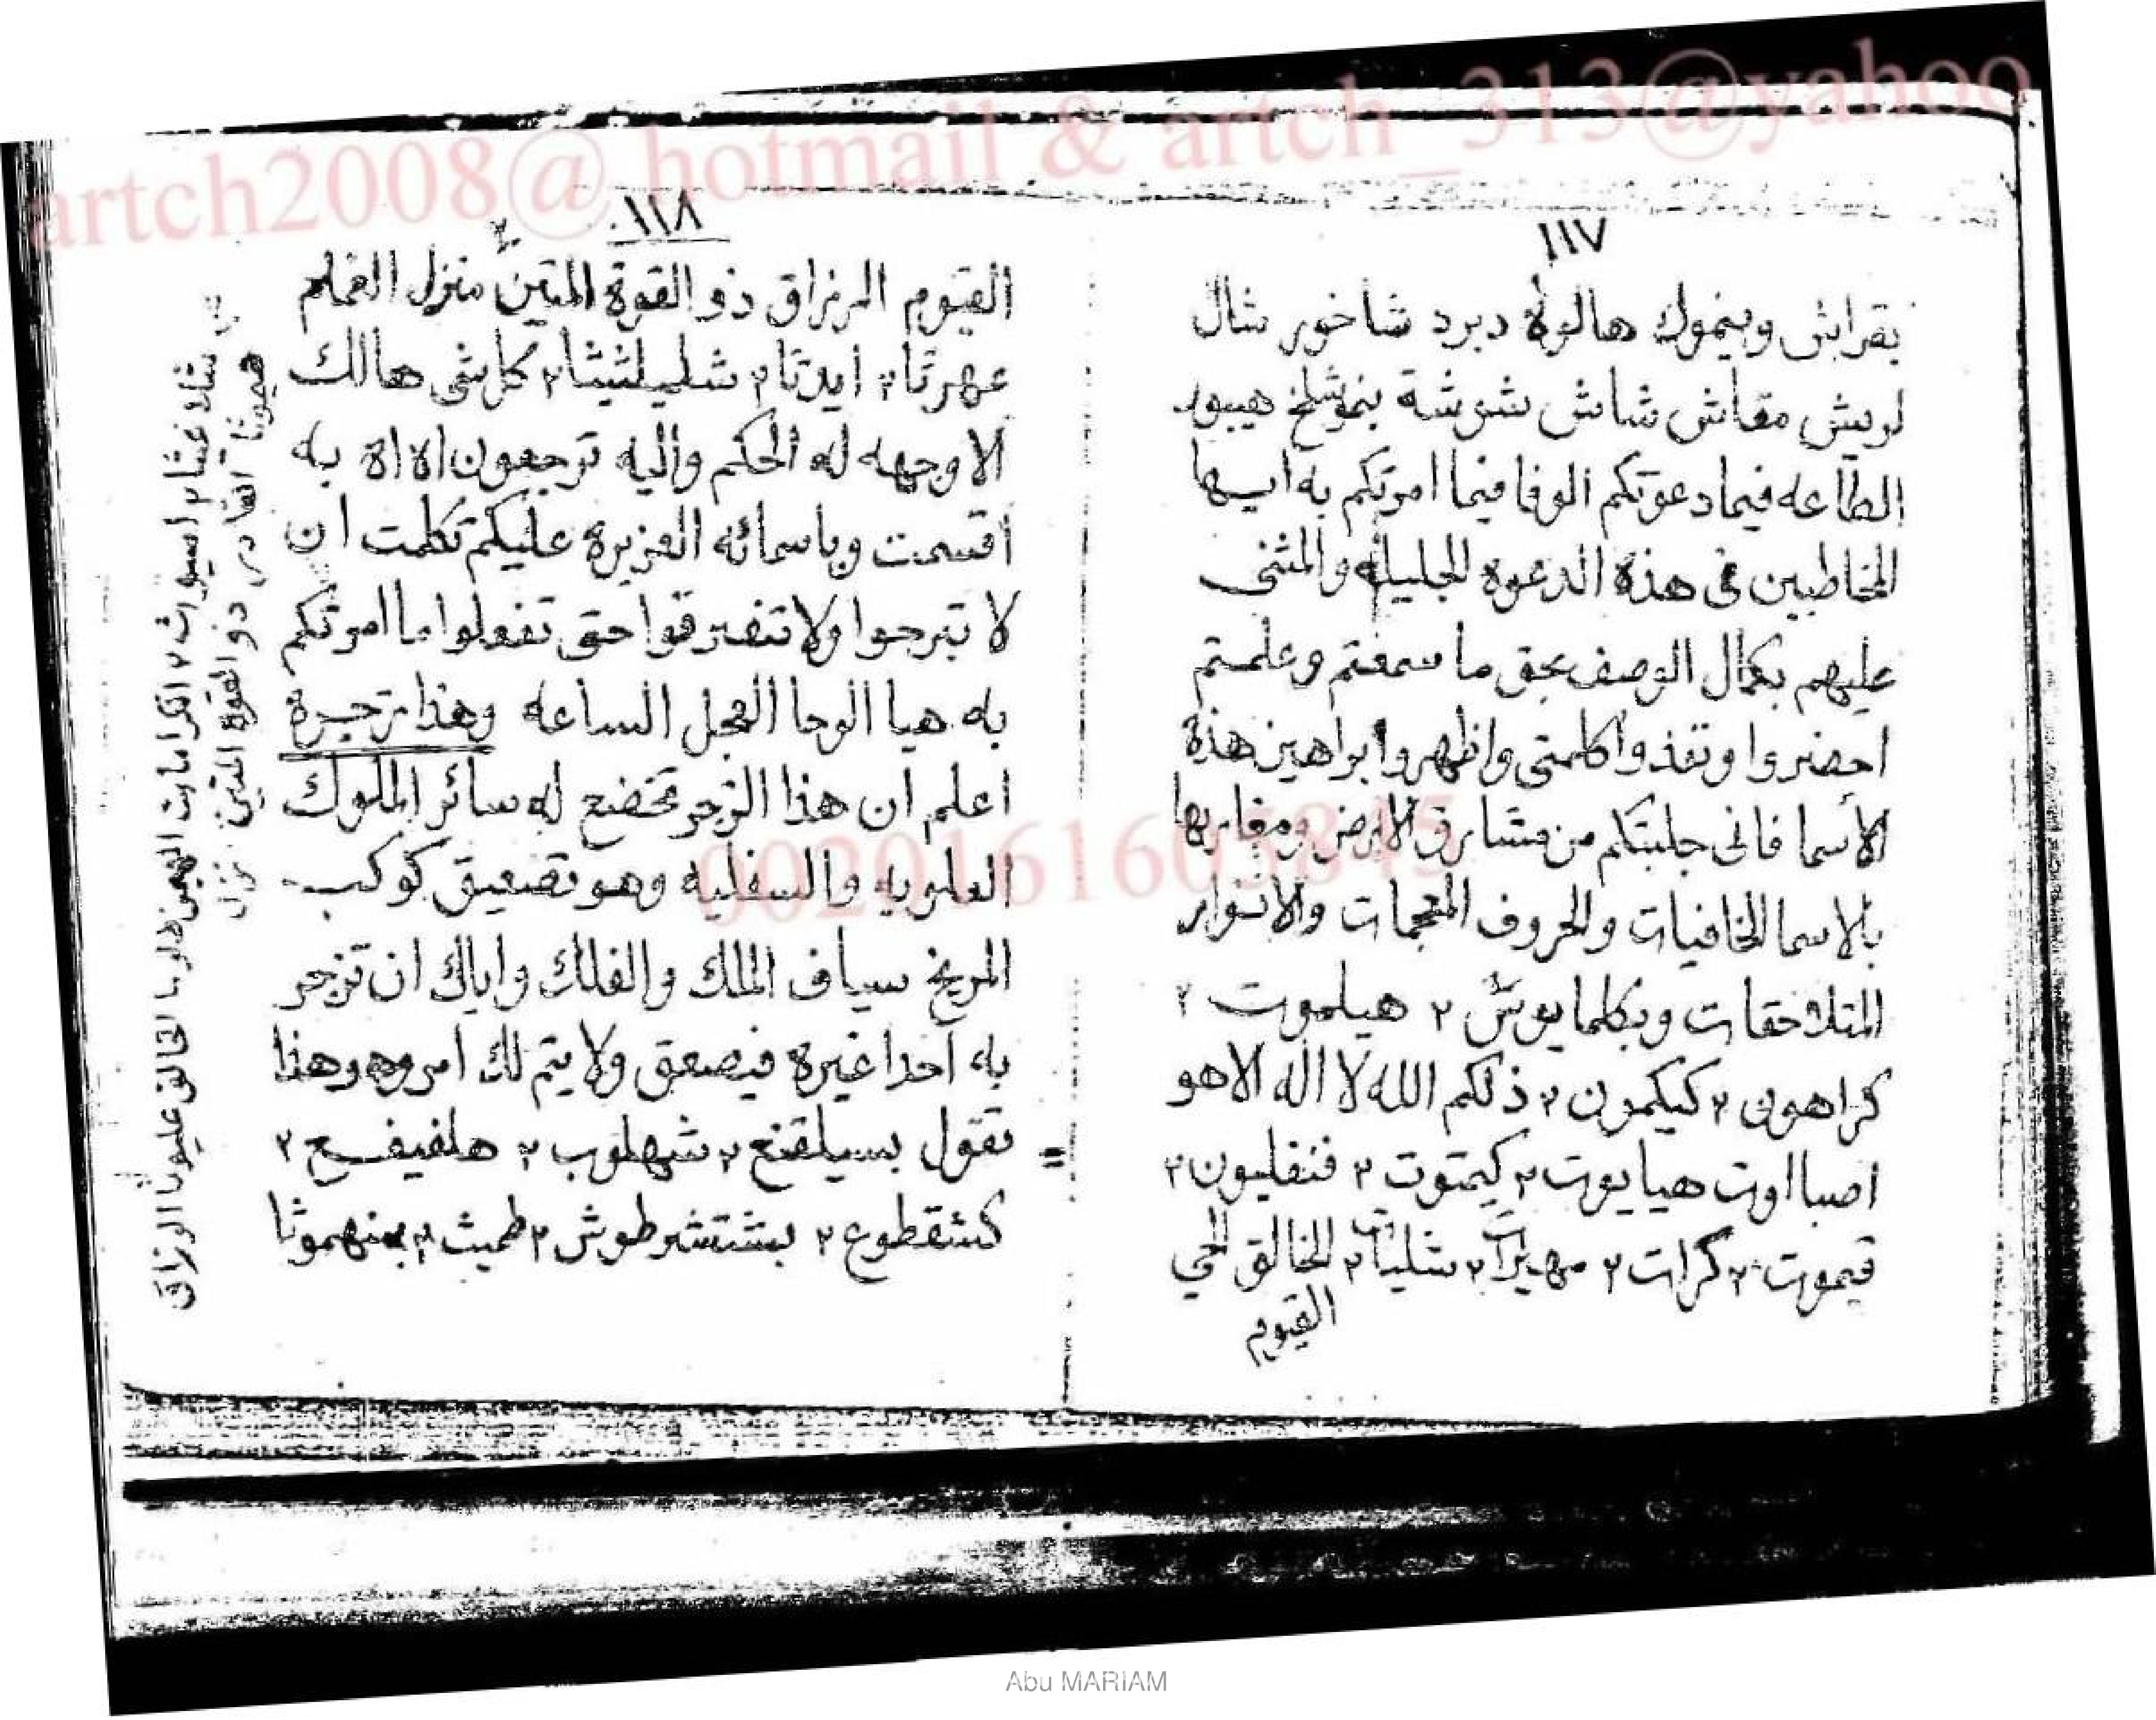 artch2008@ hotmail & artch_313@yahoo
١١٧
بقرابش وبنموك هالولاة دبرد شاخور شال
لريش مقاش شاش شوشة بنموشلخ هيبور
الطاعه فيما دعوتكم الوفا فيما امرتكم به ايها
المخاطبين فى هذة الدعوه الجليله والمثنى
عليهم بكمال الوصف بحق ما سمعتم وعلمتم
احضروا ونفذوا كلمتى واظهروا براهين هذة
الأسما فانى جلبتكم من مشارق الارض ومغاربها
بالاسما الخافيات والحروف المعجمات والانوار
المتلاحقات وبكلمايوش ٢ هيلموت ٢
كراهون ٢ كيكمون ٢ ذلكم الله لا اله الا هو
اصبااوت هيا يوت ٢ كيتموت ٢ فنفليون ٢
قيموت ٢ كرات ٢ مهيرات ٢ شليات ٢ الخالق الحي
القيوم
١١٨
القيوم الرزاق ذو القوة المتين منزل القملم
عهرتا ٢ ايدتا ٢ شليلثيثا ٢ كل شى هالك
الا وجهه له الحكم واليه ترجعون اة اة به
اقسمت وباسمائه العزيزة عليكم تكلمت ان
لا تبرحوا ولا تتفرقوا حتى تفعلوا ما امرتكم
به هيا الوحا العجل الساعه وهذا زجرة
اعلم ان هذا الزجر تخضع له سائر الملوك
العلويه والسفليه وهو تصعيق كوكب
المريخ سياف الملك والفلك واياك ان تزجر
به أحدا غيرة فيصعق ولا يتم لك امر وهو هذا
تقول بسيلقنع ٢ شهلوب ٢ هلفيفع ٢
كشقطوع ٢ بشتشرطوش ٢ طميث ٢ بمنهموثا
شلا غيثا ٢ اسيوراث ٢ الكرامات المهيمن الخالق عليوثا الرزاق
هيموثا القادر ذو القوة المتين نزل
00201616058845
Abu MARIAM